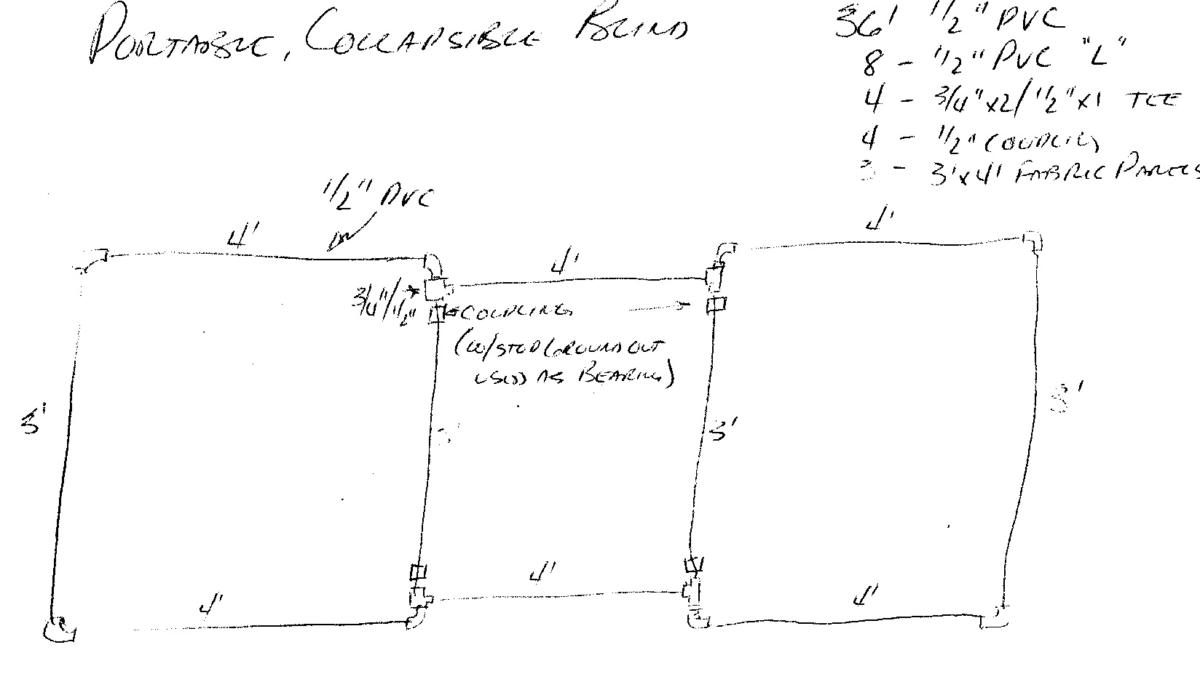 PORTABLE, COLLAPSIBLE BLIND
36' 1/2" PVC
8 - 1/2" PVC "L"
4 - 3/4"x2/1/2"x1 TEE
4 - 1/2" COUPLING
3 - 3'x4' FABRIC PANELS
1/2" PVC
4'
4'
4'
3/4"/1/2"
COUPLING
(W/STOP GROUND OUT
USED AS BEARING)
3'
3'
3'
3'
4'
4'
4'